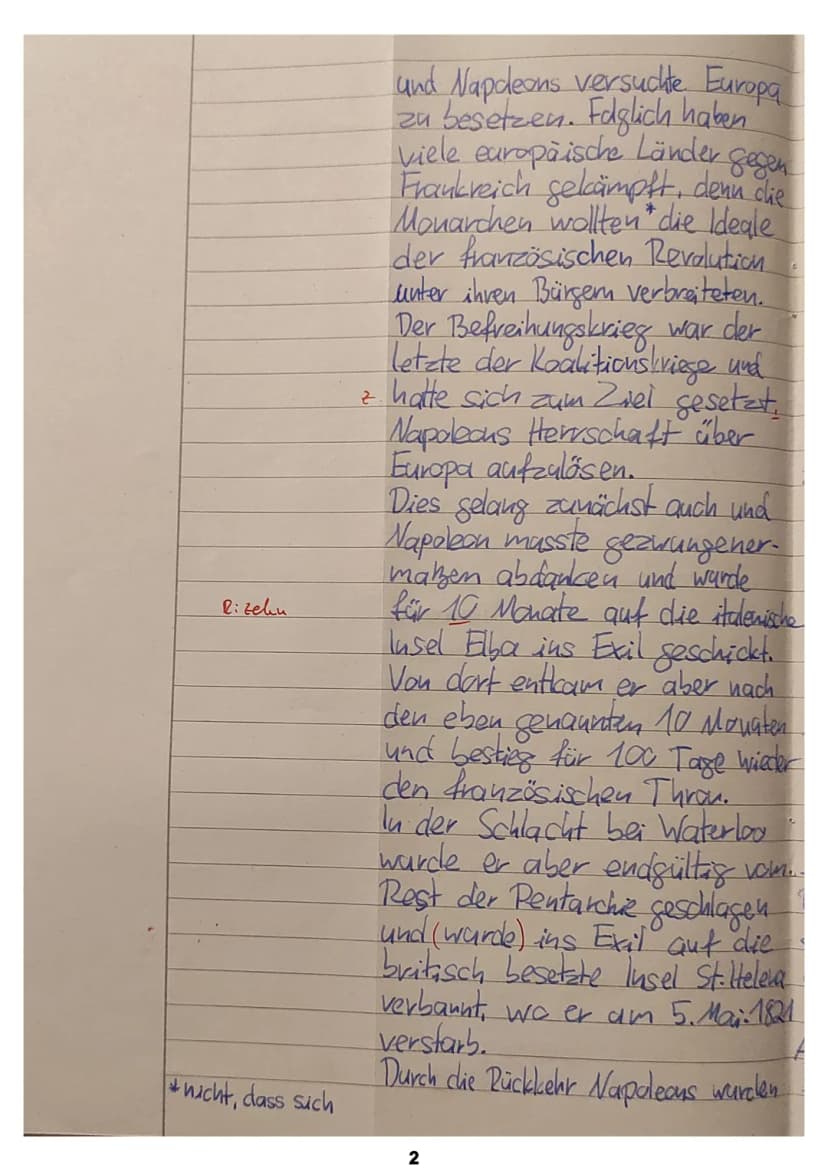 und Napoleons versuchte Europa
zu besetzen. Folglich haben
viele europäische Länder gegen
Frankreich gekämpft, denn die
Monarchen wollten* die Ideale
der französischen Revolution
unter ihren Bürgern verbreiteten.
Der Befreihungskrieg war der
letzte der Koalitionskriege und
z hatte sich zum Ziel gesetzt,
Napoleons Herrschaft über
Europa aufzulösen.
Dies gelang zunächst auch und
Napoleon musste gezwungener-
maßen abdanken und wurde
R: zehn für 10 Monate auf die italenische
Insel Elba ins Exil geschickt.
Von dort entkam er aber nach
den eben genannten 10 Monaten
und bestieg für 100 Tage wieder
den französischen Thron.
In der Schlacht bei Waterloo
wurde er aber endgültig vom
Rest der Pentarchie geschlagen
und (wurde) ins Exil auf die
britisch besetzte Insel St. Helena
verbannt, wo er am 5. Mai 1821
verstarb.
Durch die Rückkehr Napoleons wurden
*nicht, dass sich
2